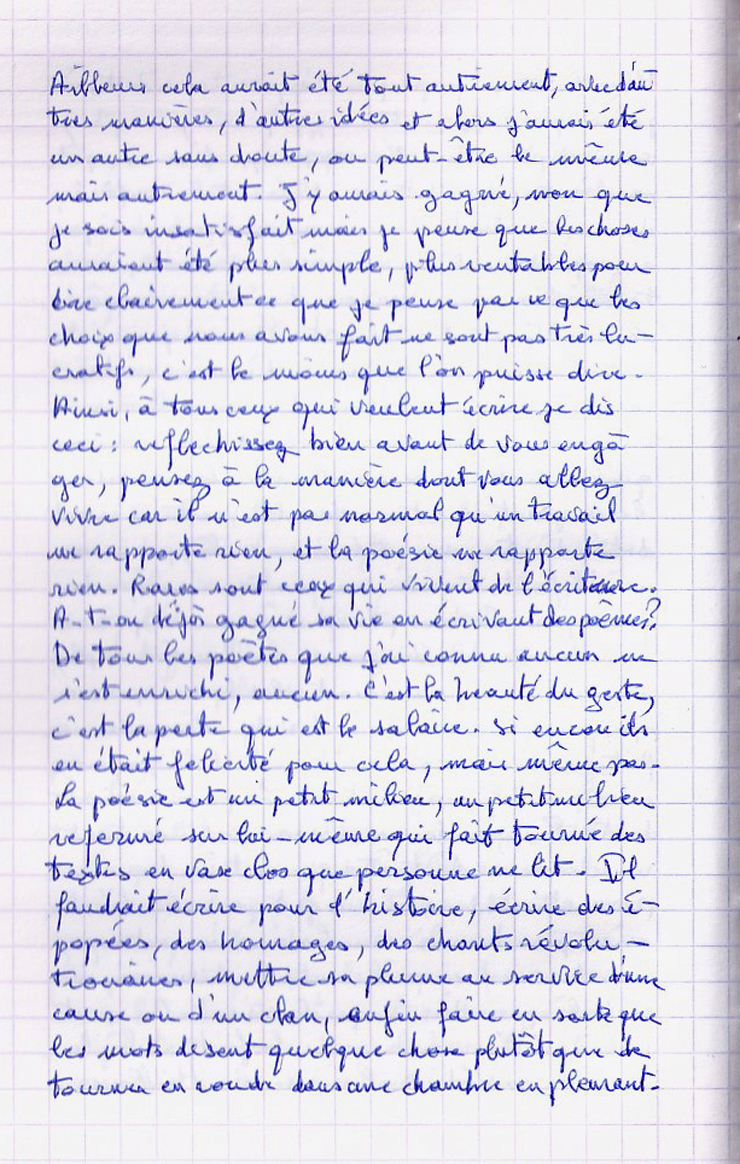 Ailleurs cela aurait été tout autrement, avec d'au
tres manières, d'autres idées et alors j'aurais été
un autre sans doute, ou peut-être le même
mais autrement. J'y aurais gagné, non que
je sois insatisfait mais je pense que les choses
auraient été plus simple, plus rentables pour
dire clairement ce que je pense parce que les
choix que nous avons fait ne sont pas très lu-
cratifs, c'est le moins que l'on puisse dire.
Ainsi, à tous ceux qui veulent écrire je dis
ceci : reflechissez bien avant de vous enga
ger, pensez à la manière dont vous allez
vivre car il n'est pas normal qu'un travail
ne rapporte rien, et la poésie ne rapporte
rien. Rares sont ceux qui vivent de l'écriture.
A-t-on déjà gagné sa vie en écrivant des poèmes?
De tous les poètes que j'ai connu aucun ne
s'est enrichi, aucun. C'est la beauté du geste,
c'est la perte qui est le salaire. Si encore ils
en était felicité pour cela, mais même pas.
La poésie est un petit milieu, un petit milieu
refermé sur lui-même qui fait tourné des
textes en vase clos que personne ne lit. Il
faudrait écrire pour l'histoire, écrire des é-
popées, des homages, des chants révolu-
tionaires, mettre sa plume au service d'une
cause ou d'un clan, enfin faire en sorte que
les mots disent quelque chose plutôt que de
tourner en ronde dans une chambre en pleurant.